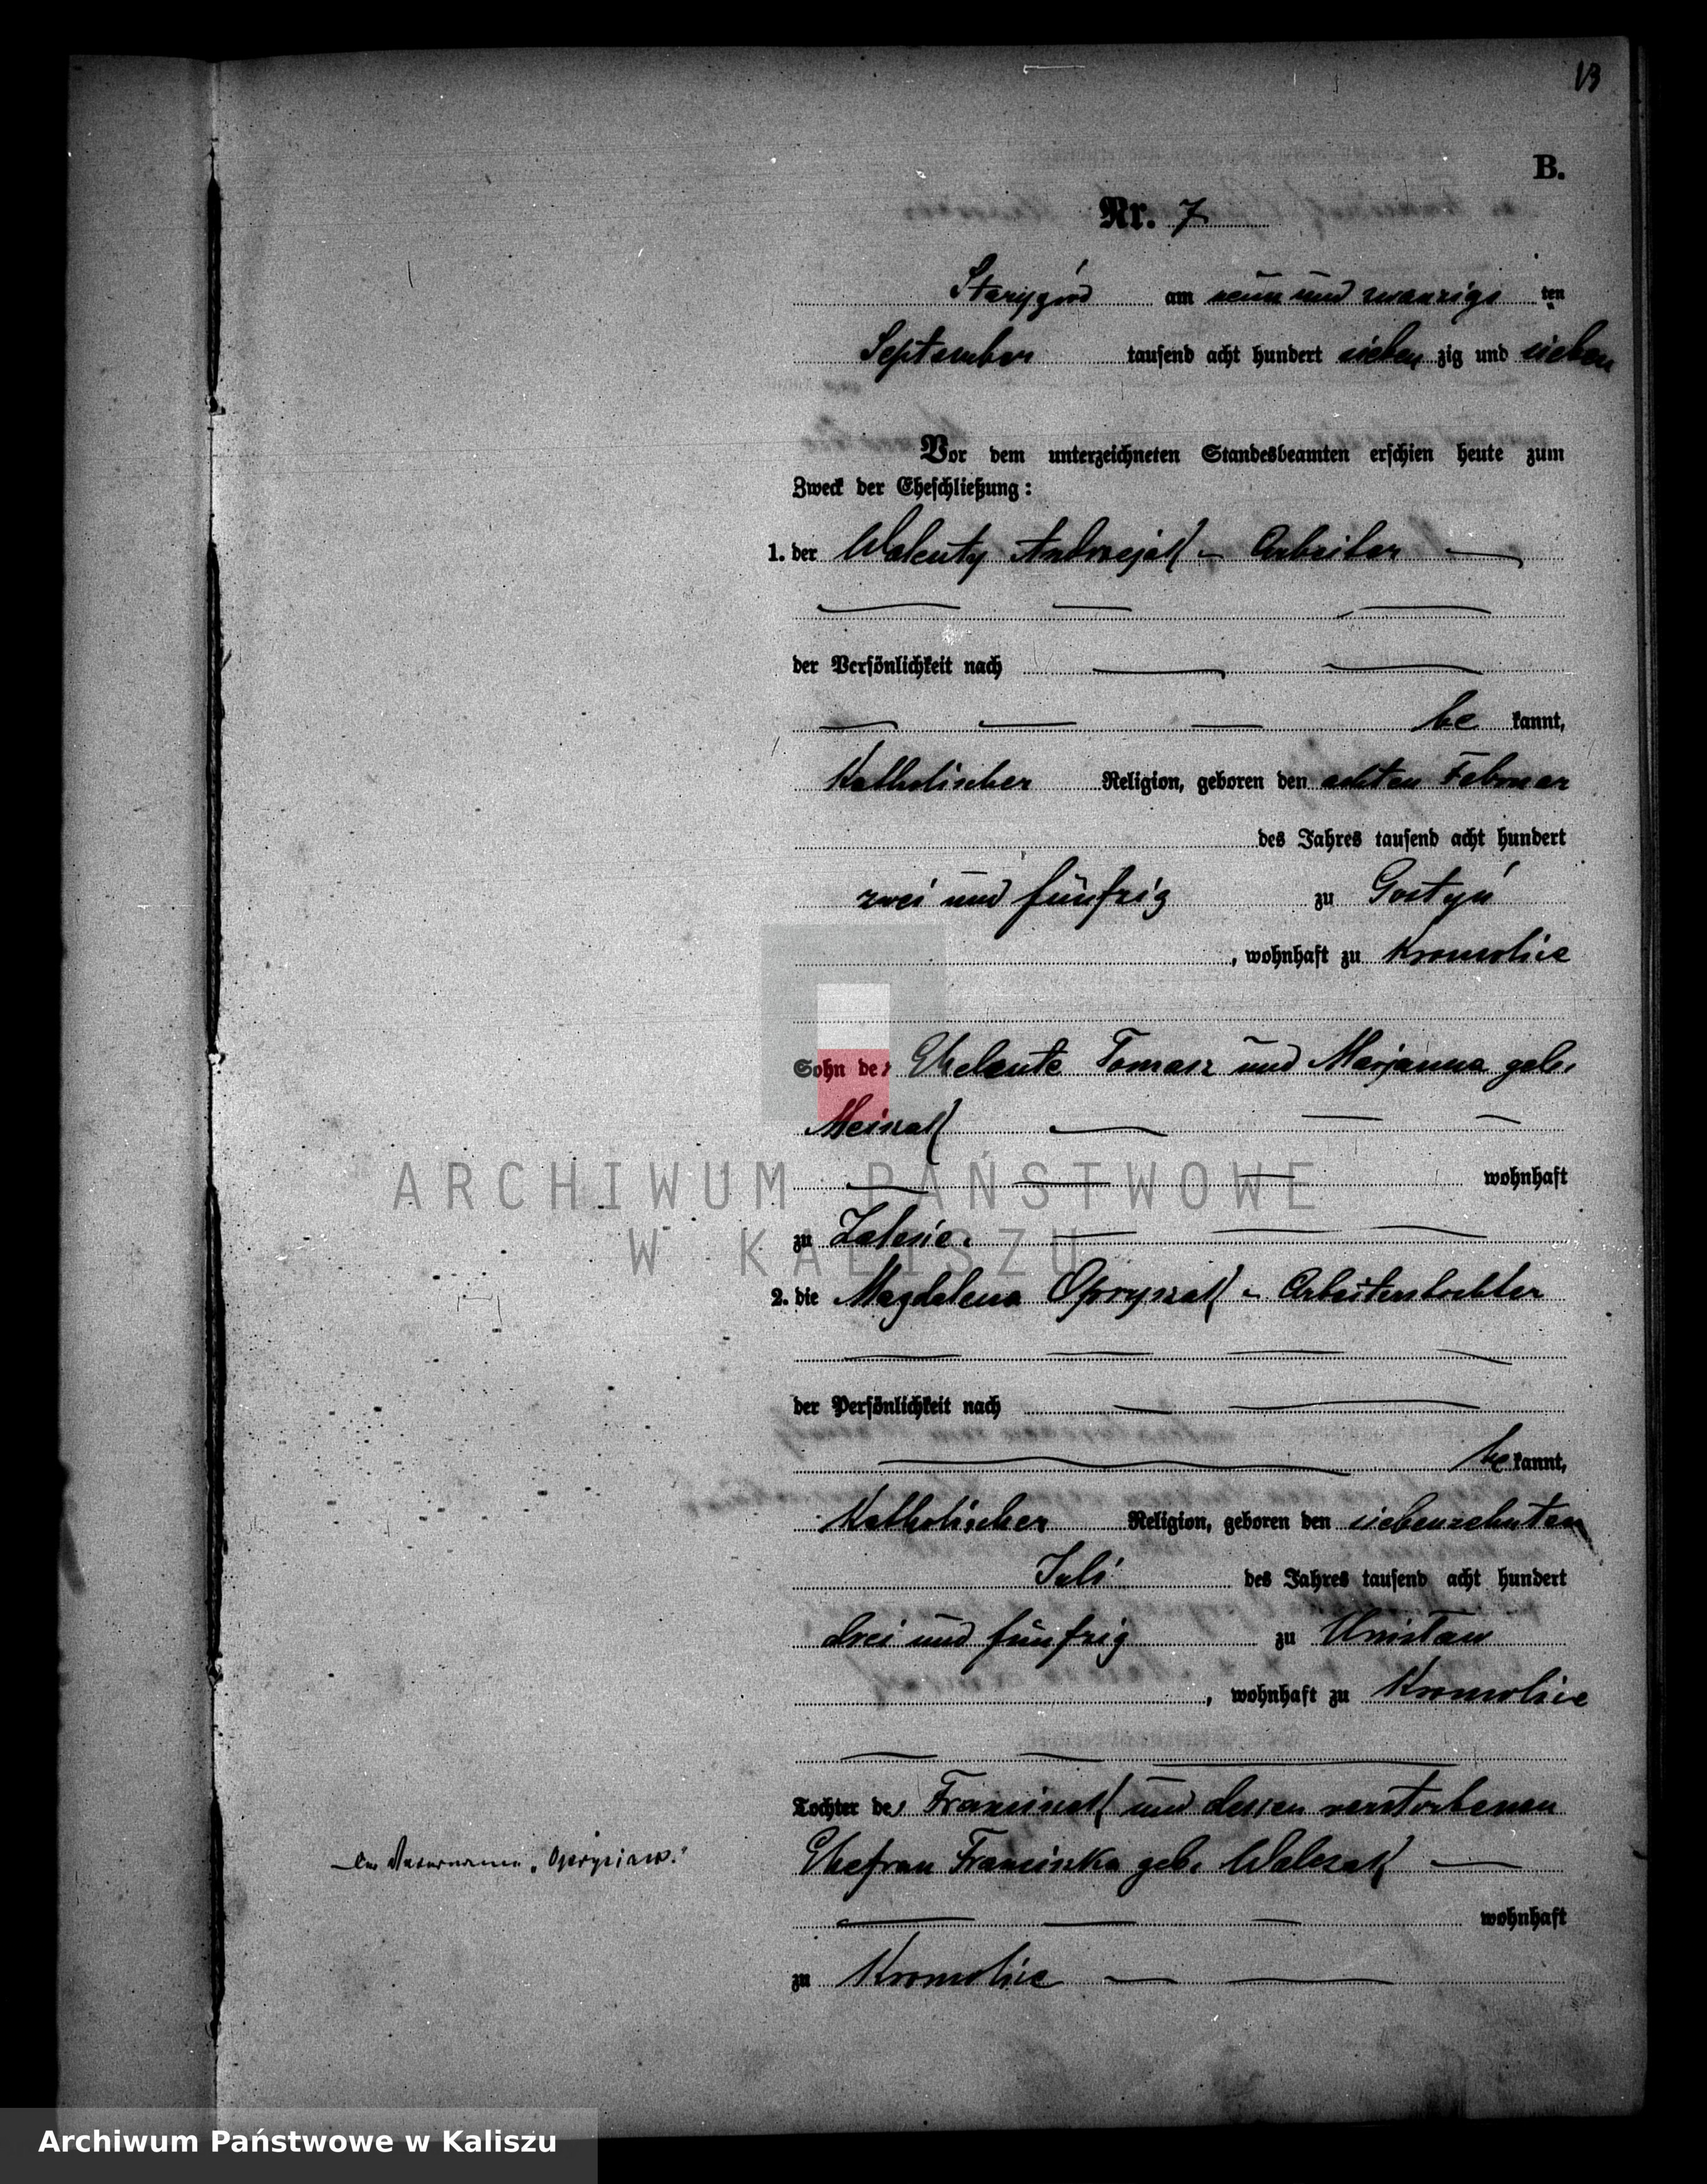 13
B.
Nr. 7
Starygród am neun und zwanzigs ten
September tausend acht hundert sieben zig und sieben
Vor dem unterzeichneten Standesbeamten erschien heute zum
Zweck der Eheschließung:
1. der Walenty Andrzejak - Arbeiter
der Persönlichkeit nach
be kannt,
Katholischer Religion, geboren den achten Februar
des Jahres tausend acht hundert
zwei und fünfzig zu Gostyń
, wohnhaft zu Kromolice
Sohn der Eheleute Tomasz und Marjanna geb.
wohnhaft
zu Zalesie.
2. die Magdalena Opryszak - Arbeiterstochter
der Persönlichkeit nach
be kannt,
Katholischer Religion, geboren den siebenzehnten
Juli des Jahres tausend acht hundert
drei und fünfzig zu
, wohnhaft zu Kromolice
Tochter des Franciszek und dessen verstorbenen
Ehefrau Franciszka geb. Walczak
wohnhaft
zu Kromolice
ARCHIWUM PAŃSTWOWE
W KALISZU
Archiwum Państwowe w Kaliszu